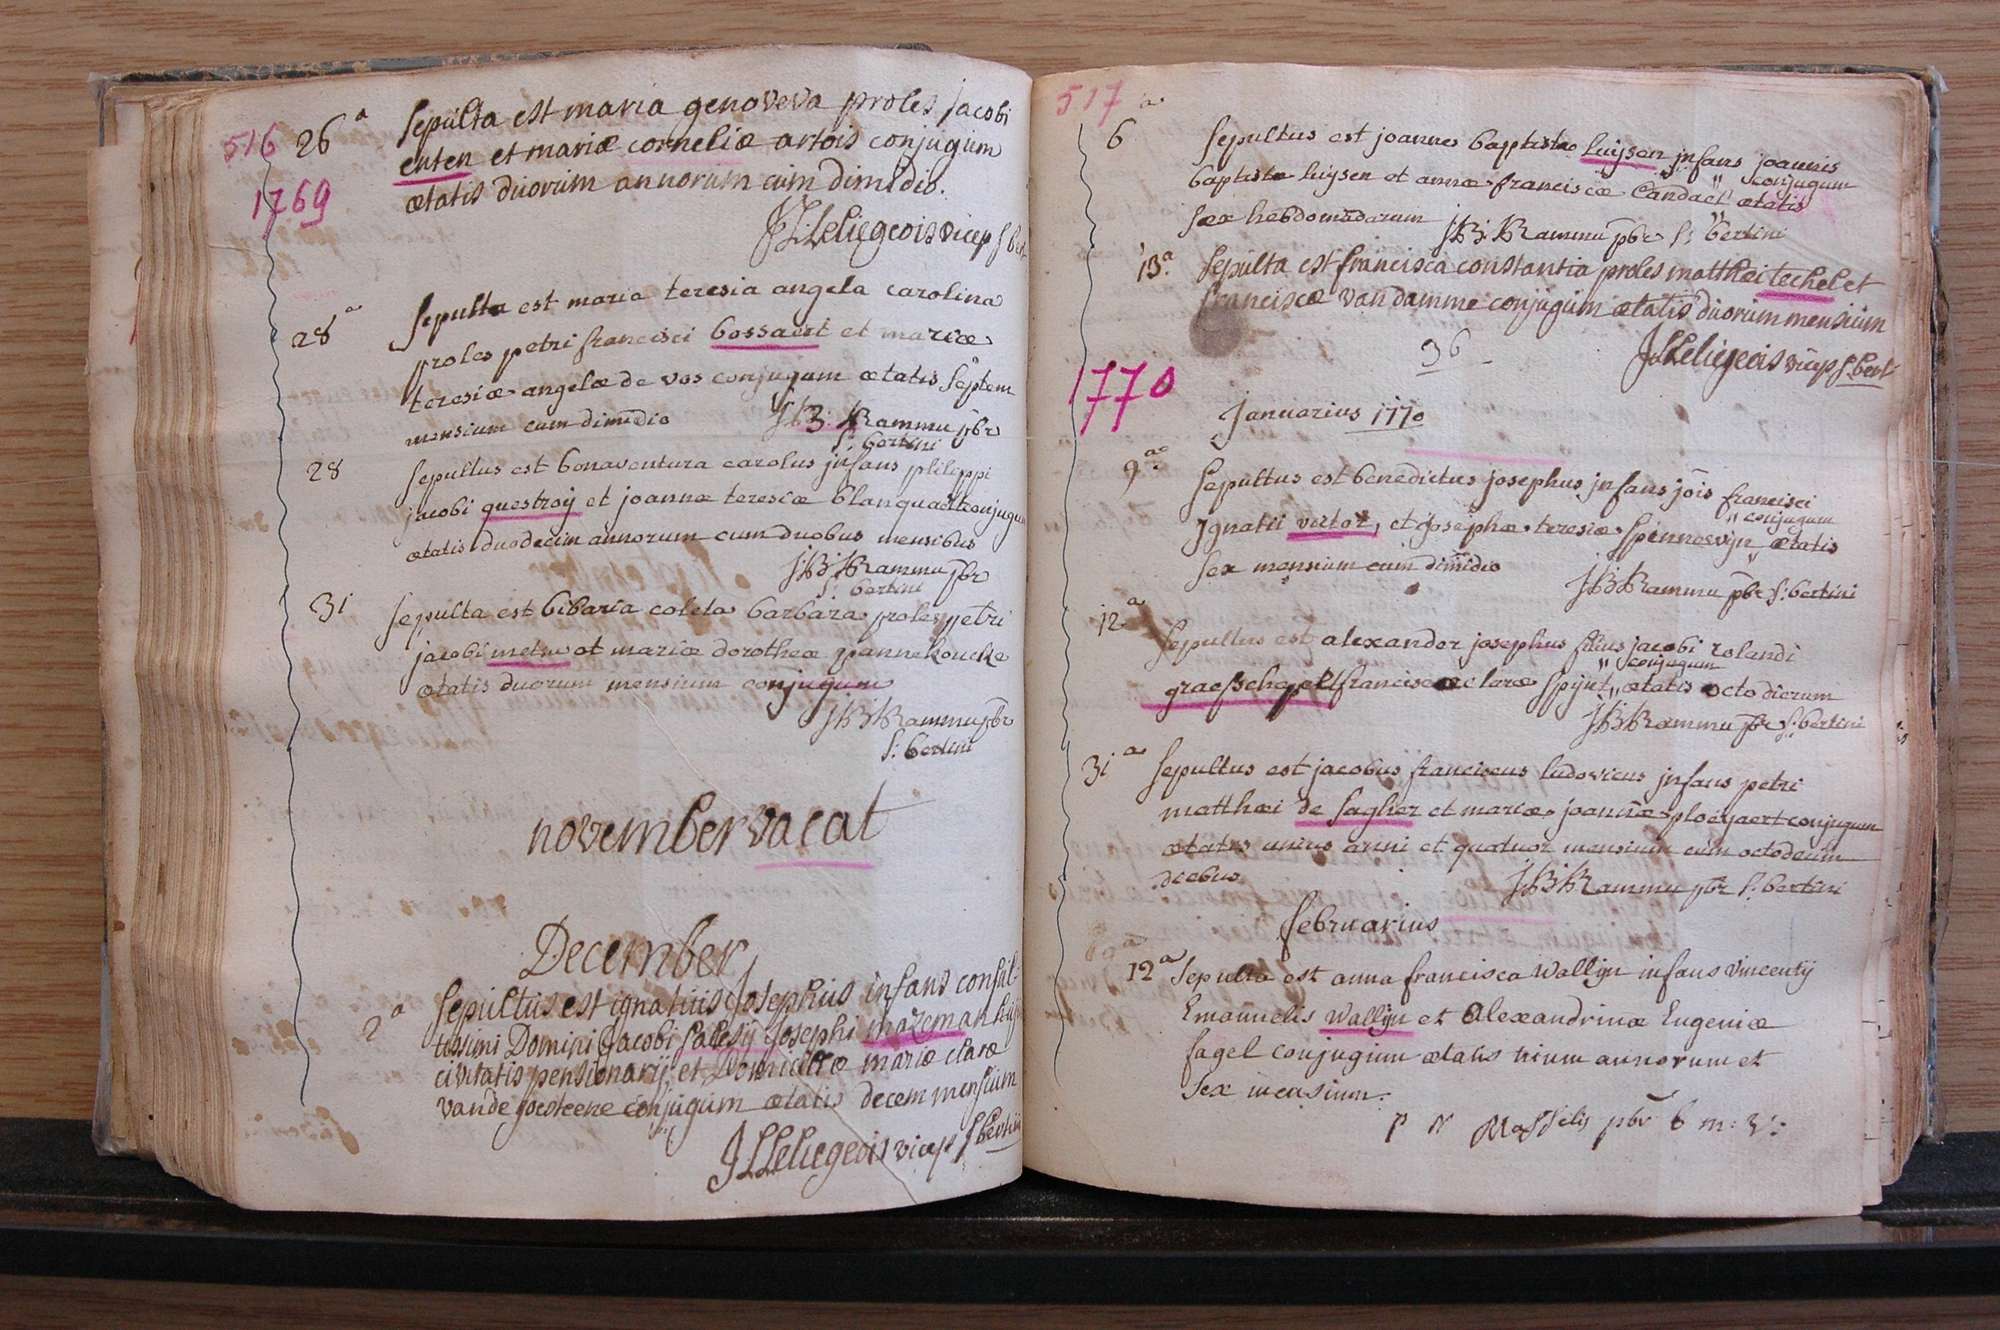 516
1769
26ᵃ Sepulta est maria genoveva proles jacobi
enten et mariæ corneliæ artois conjugum
ætatis duorum annorum cum dimidio.
JLLeliegeois vicep S Bert
28ᵃ Sepulta est maria teresia angela carolina
proles petri francisci bossaert et mariæ
teresiæ angelæ de vos conjugum ætatis septem
mensium cum dimidio JB: Rammu pbr
S: bertini
28 Sepultus est bonaventura carolus infans philippi
jacobi questroij et joannæ teresiæ blanquaert conjugum
ætatis duodecim annorum cum duobus mensibus
JB: Rammu pbr
S: bertini
31 Sepulta est bibaria coleta barbara proles petri
jacobi metu et mariæ dorotheæ pannekoucke
ætatis duorum mensium conjugum
JB: Rammu pbr
S: bertini
november vacat
December
2ᵃ Sepultus est ignatius Josephus infans consul-
tissimi Domini Jacobi salesij Josephi mazeman hujus
civitatis pensionarij et Domicellæ mariæ claræ
vande goesteene conjugum ætatis decem mensium
JLLeliegeois vicep S bertini
517
6ᵃ Sepultus est joannes baptista luijsen infans joannis
baptistæ luijsen et annæ franciscæ Candaet " conjugum " ætatis
sex hebdomadarum JB: Rammu pbr S: bertini
13ᵃ Sepulta est francisca constantia proles matthæi techel et
franciscæ van damme conjugum ætatis duorum mensium
36
JLLeliegeois vicep S. bert
1770
Januarius 1770
9ᵃ Sepultus est benedictus josephus infans jois francisci
Ignatii victor, et josephæ teresiæ Spinnewijn " conjugum " ætatis
sex mensium cum dimidio
JB: Rammu pbr S: bertini
12ᵃ Sepultus est alexander josephus filius jacobi rolandi
graesschepe et franciscæ claræ Spijut " conjugum " ætatis octo dierum
JB: Rammu pbr S: bertini
31ᵃ Sepultus est jacobus franciscus ludovicus infans petri
matthæi de sagher et mariæ joannæ ploeyaert conjugum
ætatis unius anni et quatuor mensium cum octodecim
diebus JB: Rammu pbr S: bertini
februarius
12ᵃ Sepulta est anna francisca wallijn infans vincentij
Emanuelis Wallijn et Alexandrinæ Eugeniæ
fagel conjugum ætatis trium annorum et
sex mensium.
P N Masselis pbr b m: v: